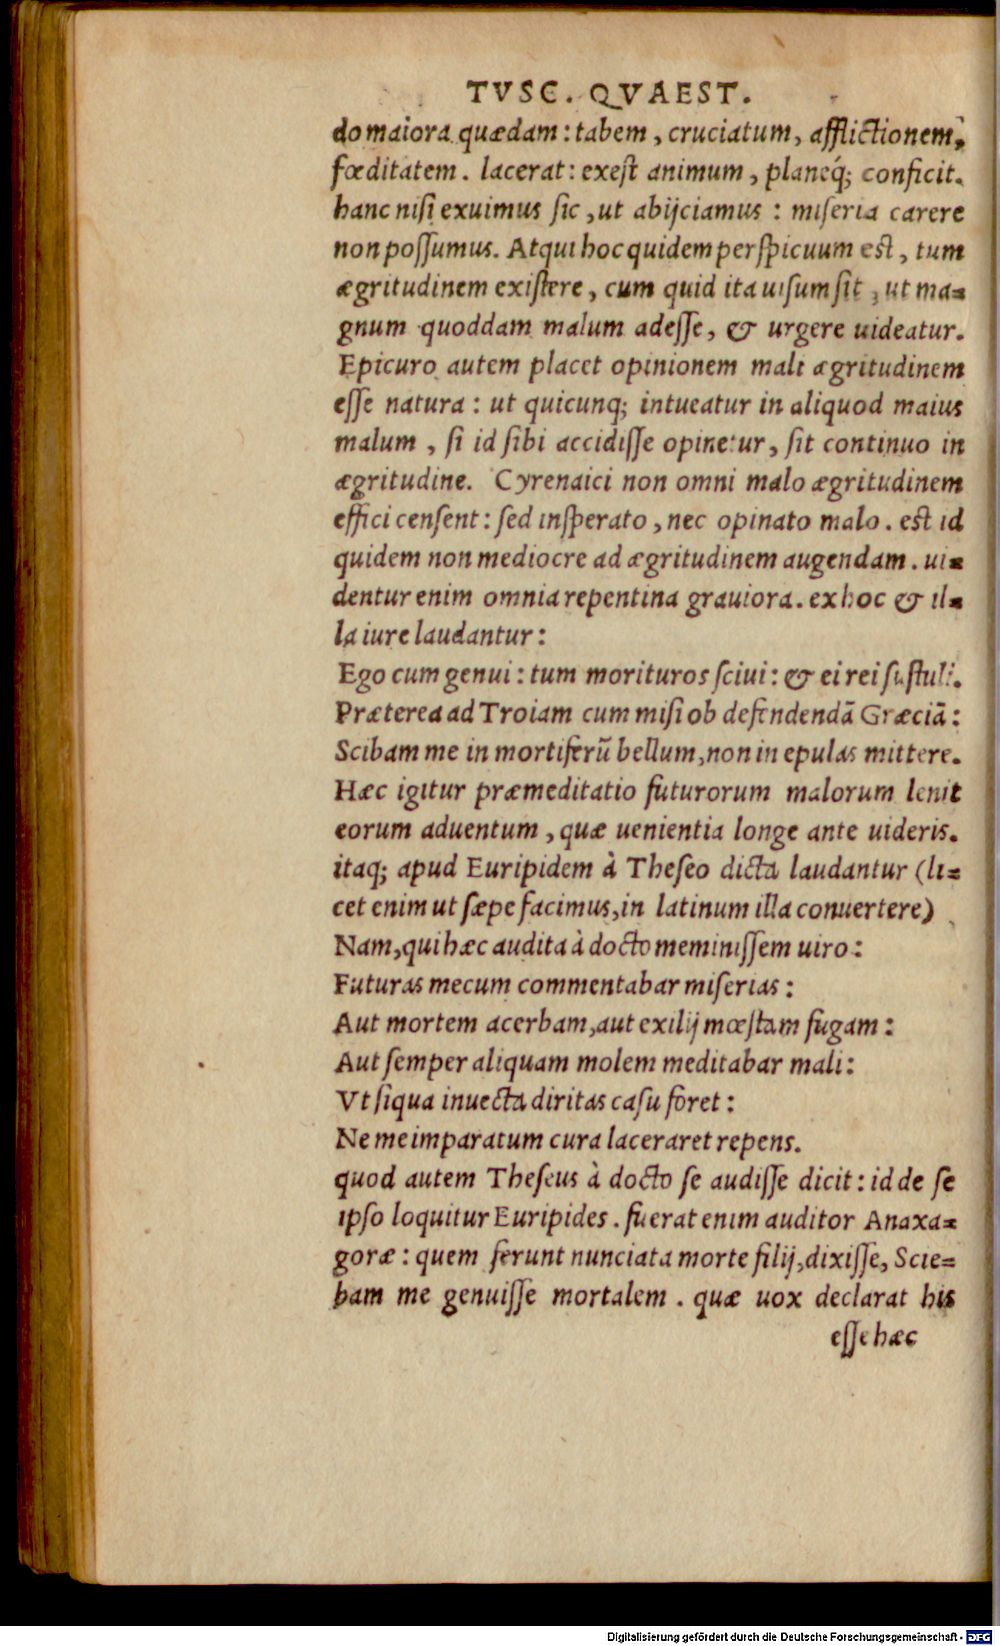 TVSC. QVAEST.
do maiora quædam: tabem, cruciatum, afflictionem,
fœditatem. lacerat: exest animum, planeq́; conficit.
hanc nisi exuimus sic, ut abijciamus: miseria carere
non possumus. Atqui hoc quidem perspicuum est, tum
ægritudinem existere, cum quid ita uisum sit, ut ma=
gnum quoddam malum adesse, & urgere uideatur.
Epicuro autem placet opinionem mali ægritudinem
esse natura: ut quicunq; intueatur in aliquod maius
malum, si id sibi accidisse opinetur, sit continuo in
ægritudine. Cyrenaici non omni malo ægritudinem
effici censent: sed insperato, nec opinato malo. est id
quidem non mediocre ad ægritudinem augendam. ui=
dentur enim omnia repentina grauiora. ex hoc & il=
la iure laudantur:
Ego cum genui: tum morituros sciui: & ei rei sustuli.
Præterea ad Troiam cum misi ob defendendã Græciã:
Scibam me in mortiferũ bellum, non in epulas mittere.
Hæc igitur præmeditatio futurorum malorum lenit
eorum aduentum, quæ uenientia longe ante uideris.
itaq; apud Euripidem à Theseo dicta laudantur (li=
cet enim ut sæpe facimus, in latinum illa conuertere)
Nam, qui hæc audita à docto meminissem uiro:
Futuras mecum commentabar miserias:
Aut mortem acerbam, aut exilij mœstam fugam:
Aut semper aliquam molem meditabar mali:
Vt siqua inuecta diritas casu foret:
Ne me imparatum cura laceraret repens.
quod autem Theseus à docto se audisse dicit: id de se
ipso loquitur Euripides. fuerat enim auditor Anaxa=
goræ: quem ferunt nunciata morte filij, dixisse, Scie=
bam me genuisse mortalem. quæ uox declarat his
esse hæc
Digitalisierung gefördert durch die Deutsche Forschungsgemeinschaft - DFG